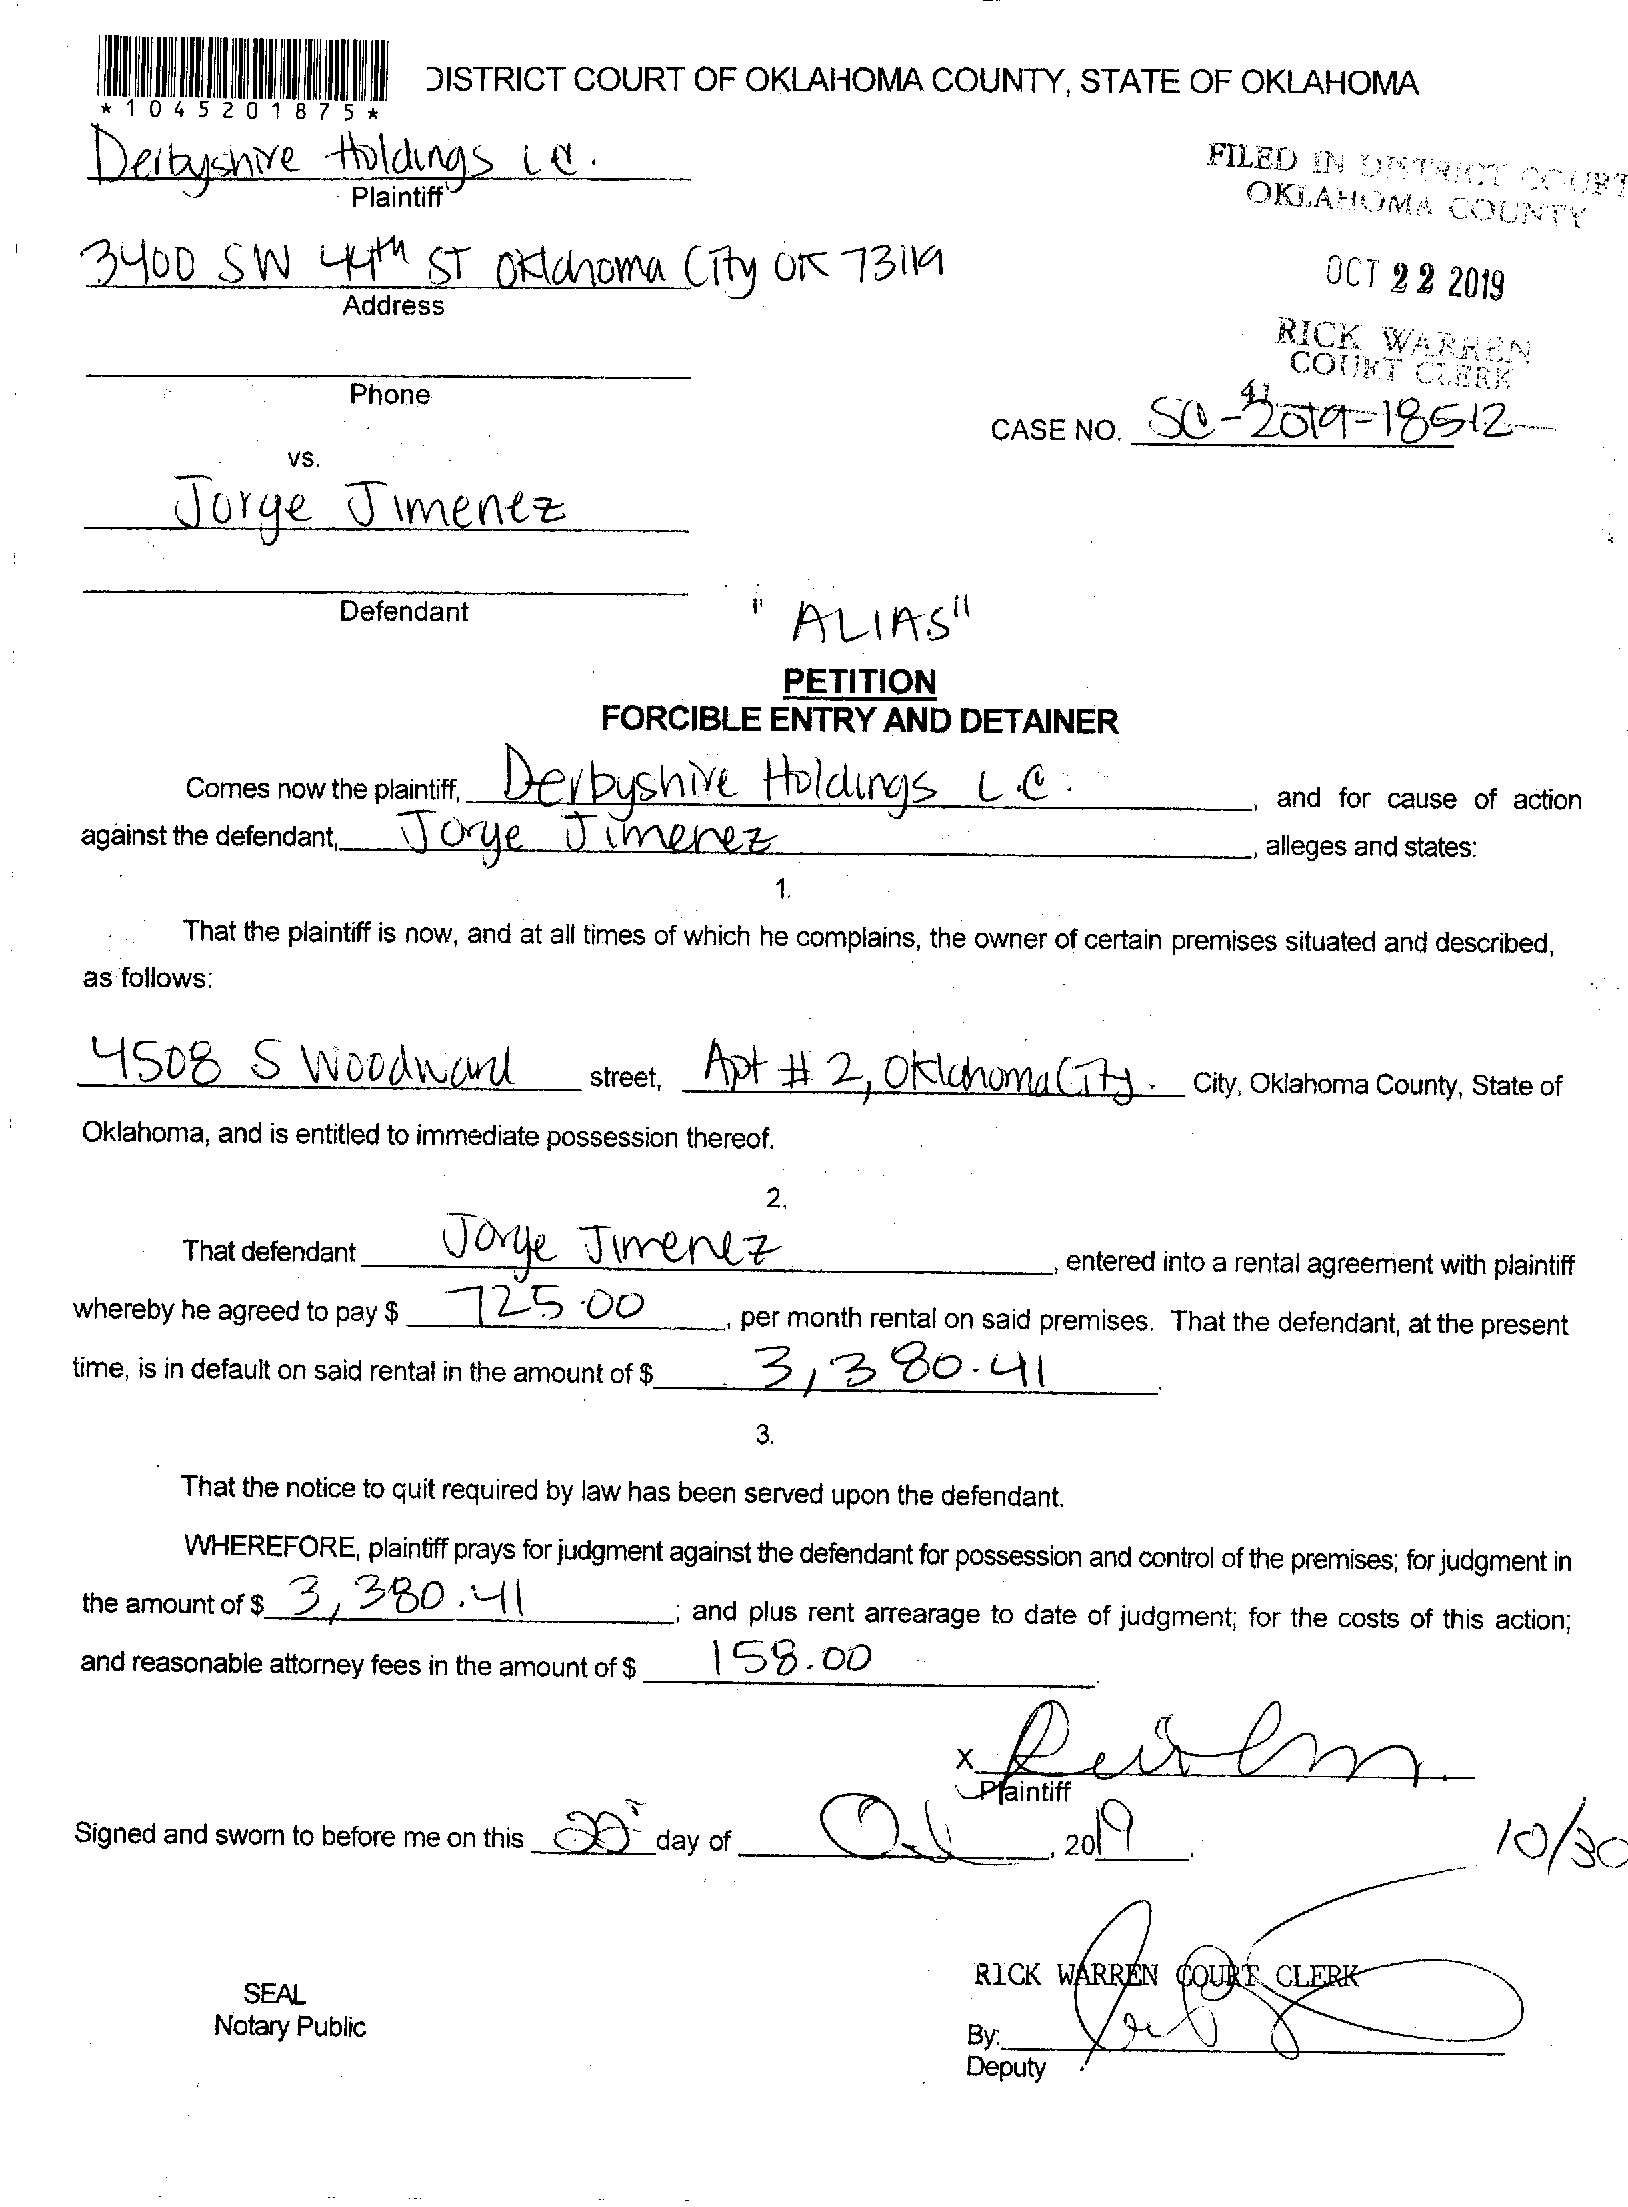 *1045201875*
DISTRICT COURT OF OKLAHOMA COUNTY, STATE OF OKLAHOMA
Derbyshire Holdings L.C.
Plaintiff
FILED IN DISTRICT COURT
OKLAHOMA COUNTY
3400 SW 44th ST Oklahoma City OK 73119
Address
OCT 22 2019
RICK WARREN
COURT CLERK
Phone
41
CASE NO. SC-2019-18512
vs.
Jorge Jimenez
Defendant
"ALIAS"
PETITION
FORCIBLE ENTRY AND DETAINER
Comes now the plaintiff, Derbyshire Holdings L.C. , and for cause of action
against the defendant, Jorge Jimenez , alleges and states:
1.
That the plaintiff is now, and at all times of which he complains, the owner of certain premises situated and described,
as follows:
4508 S Woodward street, Apt # 2, Oklahoma City. City, Oklahoma County, State of
Oklahoma, and is entitled to immediate possession thereof.
2.
That defendant Jorge Jimenez , entered into a rental agreement with plaintiff
whereby he agreed to pay $ 725.00 , per month rental on said premises. That the defendant, at the present
time, is in default on said rental in the amount of $ 3,380.41 .
3.
That the notice to quit required by law has been served upon the defendant.
WHEREFORE, plaintiff prays for judgment against the defendant for possession and control of the premises; for judgment in
the amount of $ 3,380.41 ; and plus rent arrearage to date of judgment; for the costs of this action;
and reasonable attorney fees in the amount of $ 158.00 .
X
Plaintiff
Signed and sworn to before me on this 22 day of Oct , 2019 .
10/30
RICK WARREN COURT CLERK
SEAL
Notary Public
By:
Deputy